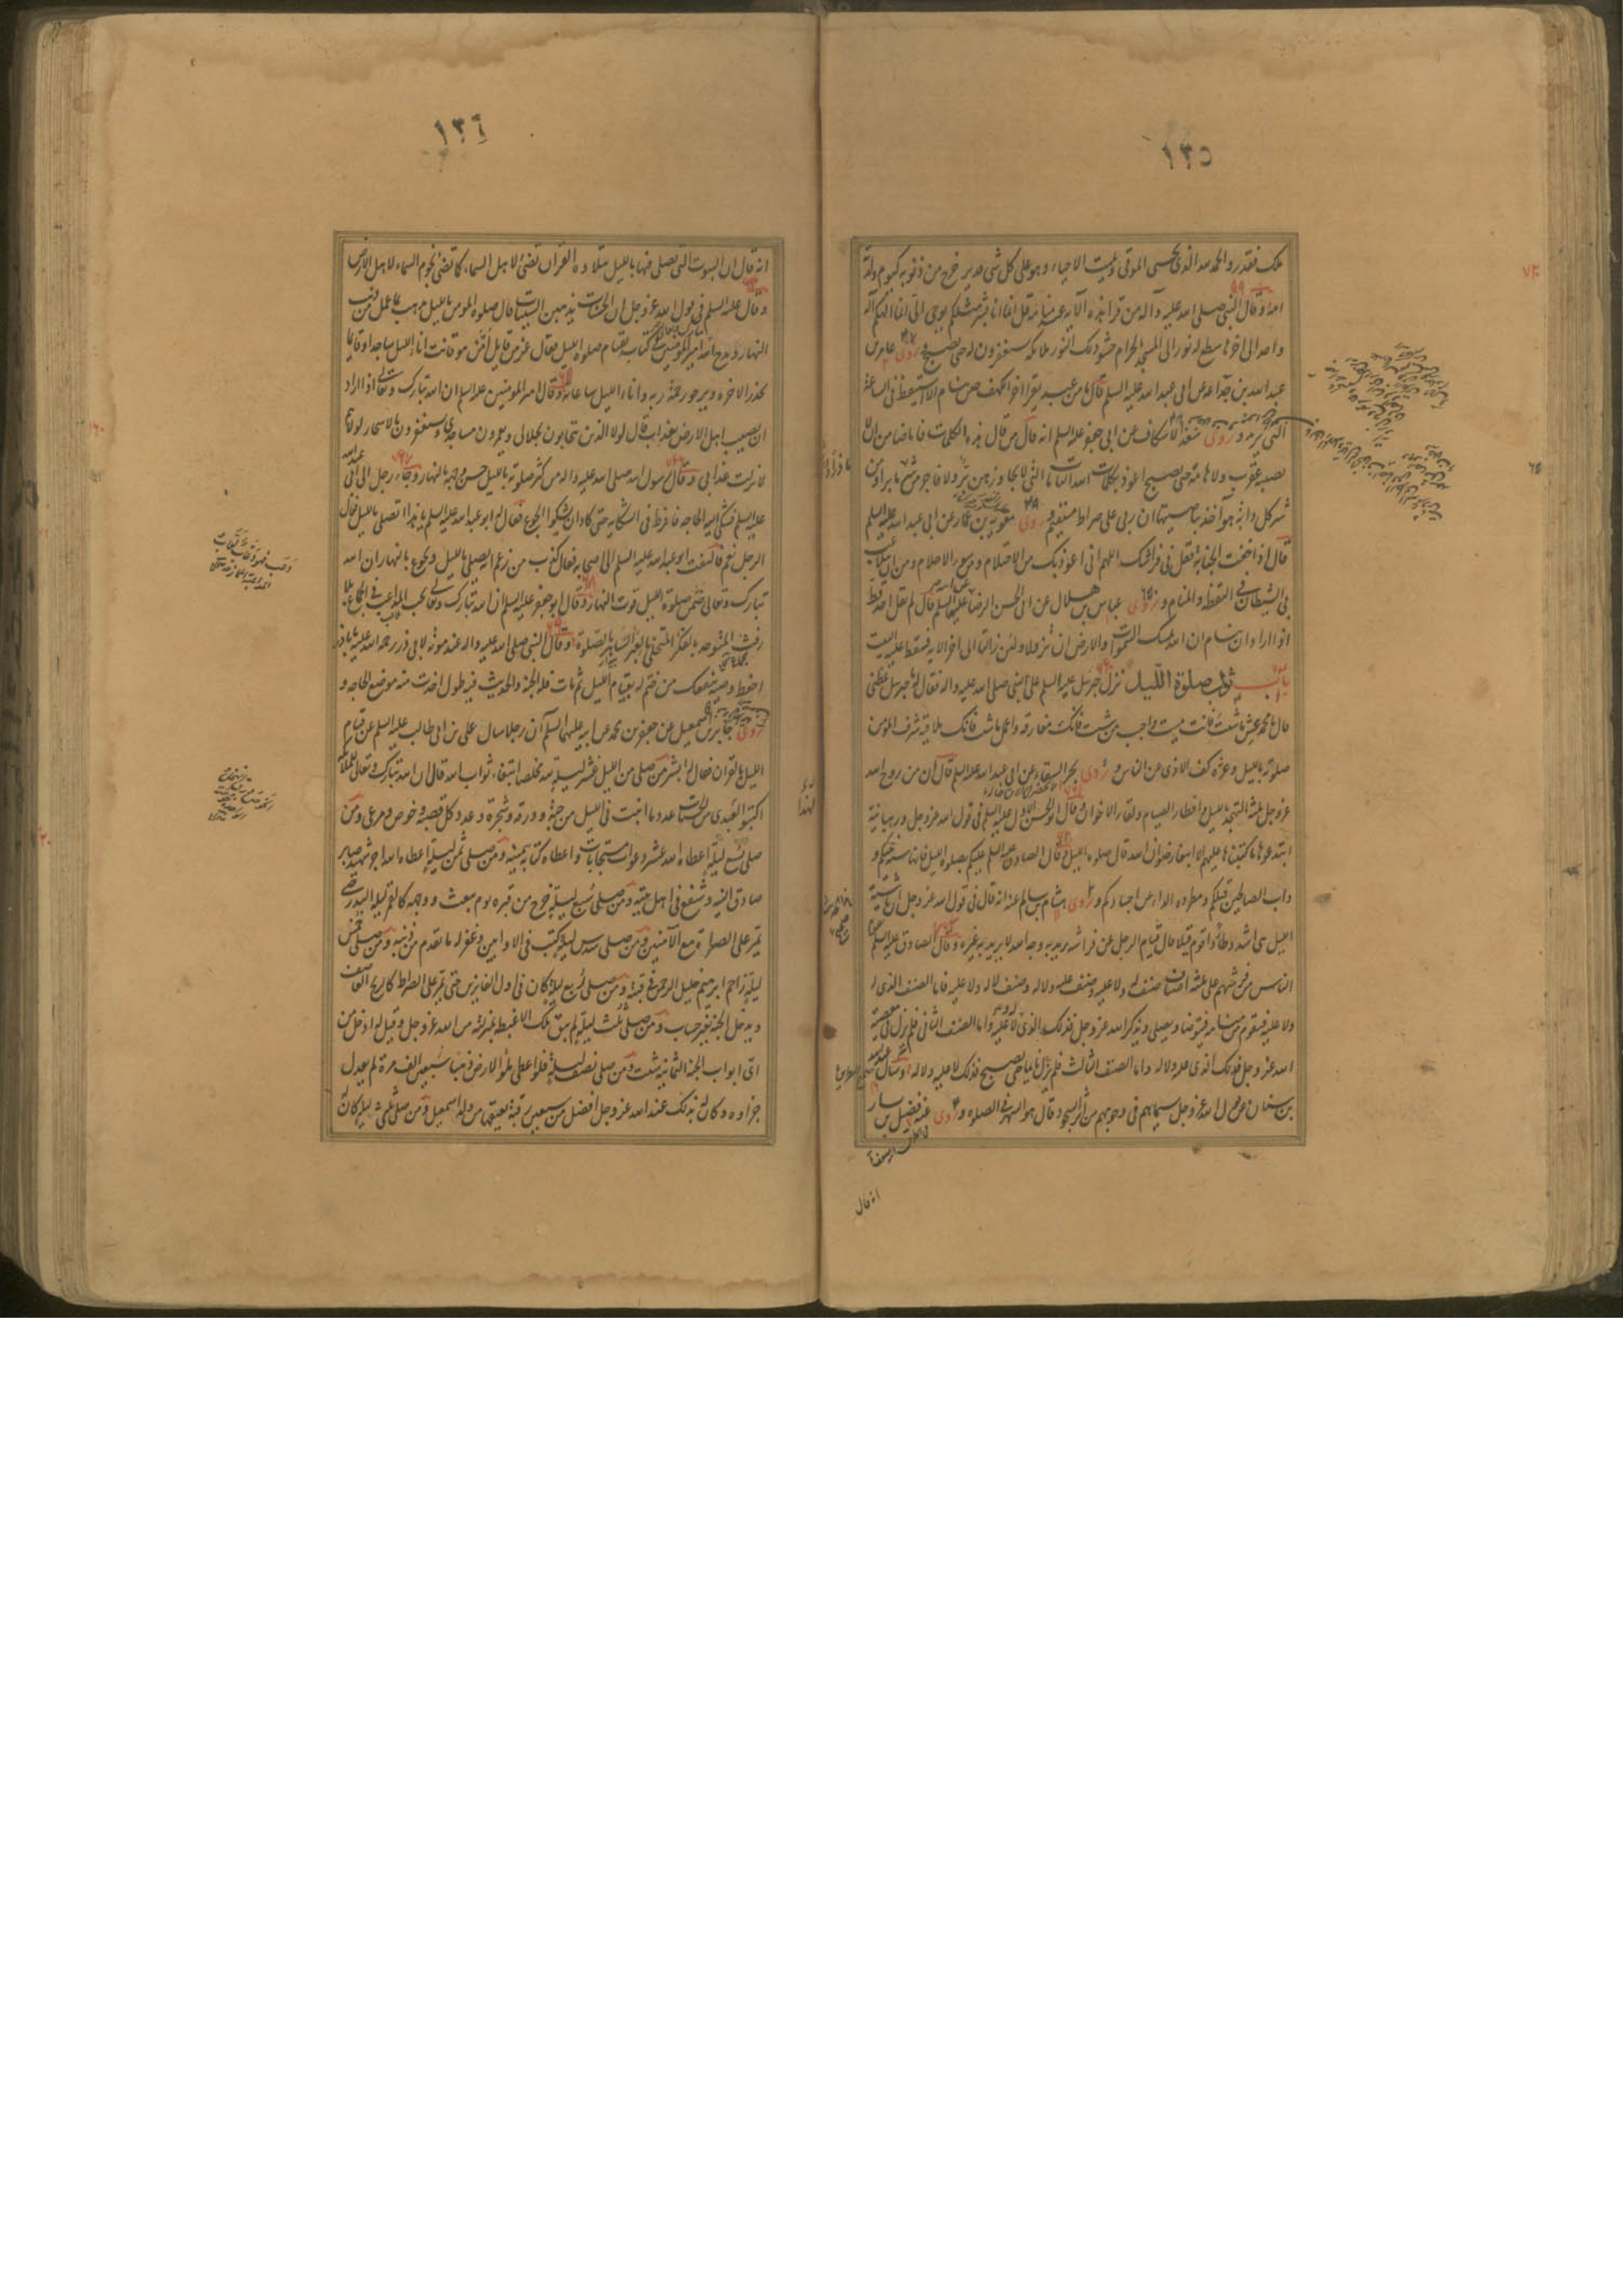 ١٣٥
ملك فقدر والحمد لله الذي يحيي الموتى ويميت الاحياء وهو على كل شي قدير خرج من ذنوبه كيوم ولدته
امه وقال النبي صلى الله عليه وآله من قرا هذه الآية عند منامه قل انما انا بشر مثلكم يوحى الي انما الهكم اله
واحد الى اخرها سطع له نور الى المسجد الحرام حشو ذلك النور ملائكة يستغفرون له حتى يصبح وروى عامر بن
عبد الله بن جذاعه عن ابي عبد الله عليه السلم قال ما من عبد يقرا اخر الكهف حين ينام الا استيقظ في الساعة
التي يريد وروى سعد الاسكاف عن ابي جعفر عليه السلم انه قال من قال هذه الكلمات فانا ضامن ان لا
يصيبه عقرب ولا هامة حتى يصبح اعوذ بكلمات الله التامات التي لا يجاوزهن بر ولا فاجر من شر ما برا ومن
شر كل دابة هو آخذ بناصيتها ان ربي على صراط مستقيم وروى معوية بن عمار عن ابي عبد الله عليه السلم
قال اذا خفت الجنابة فقل في فراشك اللهم اني اعوذ بك من الاحتلام ومن سوء الاحلام ومن ان يتلاعب
بي الشيطان في اليقظة والمنام وروى عباس بن هلال عن ابي الحسن الرضا عليه السلم قال لم يقل احد قط
اذا اراد ان ينام ان الله يمسك السموات والارض ان تزولا ولئن زالتا الى اخر الاية فيسقط عليه البيت
باب ثواب صلوة الليل نزل جبرئيل عليه السلم على النبي صلى الله عليه واله فقال له يا جبرئيل عظني
قال يا محمد عش ما شئت فانك ميت واحبب من شئت فانك مفارقه واعمل ما شئت فانك ملاقيه شرف المؤمن
صلوته بالليل وعزه كف الاذى عن الناس وروى بحر السقاء عن ابي عبد الله عليه السلم قال ان من روح الله
عز وجل ثلثة التهجد بالليل وافطار الصيام ولقاء الاخوان وقال ابو الحسن الاول عليه السلم في قول الله عز وجل ورهبانية
ابتدعوها ما كتبناها عليهم الا ابتغاء رضوان الله قال صلوة الليل وقال الصادق عليه السلم عليكم بصلوة الليل فانها سنة نبيكم و
داب الصالحين قبلكم ومطردة الداء عن اجسادكم وروى هشام بن سالم عنه انه قال في قول الله عز وجل ان ناشئة
الليل هي اشد وطأ واقوم قيلا قال قيام الرجل عن فراشه يريد به وجه الله لا يريد به غيره وقال الصادق عليه السلم
الناس من فرشهم على ثلثة اصناف صنف له ولا عليه وصنف عليه ولا له وصنف لا له ولا عليه فاما الصنف الذي له
ولا عليه فيقوم من منامه فيتوضا ويصلي ويذكر الله عز وجل فذلك الذي له ولا عليه واما الصنف الثاني فلم يزل في معصية
الله عز وجل فذلك الذي عليه ولا له واما الصنف الثالث فلم يزل نائما حتى يصبح فذلك لا عليه ولا له وسال عبد الله
بن سنان عن قول الله عز وجل سيماهم في وجوههم من اثر السجود قال هو السهر في الصلوة وروى عنه فضيل بن يسار
انه قال
١٣٦
انه قال ان البيوت التي يصلى فيها بالليل بتلاوة القران تضئ لاهل السماء كما تضئ نجوم السماء لاهل الارض
وقال عليه السلم في قول الله عز وجل ان الحسنات يذهبن السيئات قال صلوة المومن بالليل تذهب بما عمل من ذنب
النهار ومدح الله امير المؤمنين في كتابه بقيام صلوة الليل فقال عز من قايل امّن هو قانت اناء الليل ساجدا وقايما
يحذر الاخرة ويرجو رحمة ربه واناء الليل ساعاته وقال امير المومنين عليه السلم ان الله تبارك وتعالى اذا اراد
ان يصيب اهل الارض بعذاب قال لولا الذين يتحابون بجلالي ويعمرون مساجدي ويستغفرون بالاسحار لولاهم
لانزلت عذابي وقال رسول الله صلى الله عليه واله من كثر صلوته بالليل حسن وجهه بالنهار وجاء رجل الى ابي عبد الله
عليه السلم فشكى اليه الحاجة فافرط في الشكاية حتى كاد ان يشكو الجوع فقال له ابو عبد الله عليه السلم يا هذا اتصلي بالليل فقال
الرجل نعم فالتفت ابو عبد الله عليه السلم الى اصحابه فقال كذب من زعم انه يصلي بالليل ويجوع بالنهار ان الله
تبارك وتعالى ضمن صلوة الليل قوت النهار وقال ابو جعفر عليه السلم ان الله تبارك وتعالى يحب المداعب في الجماع بلا
رفث المتوحد بالفكر المتخلي بالعبر الساهر بالصلوة وقال النبي صلى الله عليه واله عند موته لابي ذر رحمة الله عليه يا باذر
احفظ وصية نبيك من ختم له بقيام الليل ثم مات فله الجنة والحديث فيه طول اخذت منه موضع الحاجة و
روى جابر بن اسمعيل عن جعفر بن محمد عن ابيه عليهما السلم ان رجلا سال علي بن ابي طالب عليه السلم عن قيام
الليل بالقران فقال له ابشر من صلى من الليل عشر ليلة لله مخلصا ابتغاء ثواب الله قال الله تبارك وتعالى لملائكته
اكتبوا لعبدي من الحسنات عدد ما انبت في الليل من حبة وورقة وشجرة وعدد كل قصبة وخوص ومرعى ومن
صلى تسع ليلة اعطاه الله عشر دعوات مستجابات واعطاه كتابه بيمينه ومن صلى ثمن ليلة اعطاه الله اجر شهيد صابر
صادق النية وشفع في اهل بيته ومن صلى سبع ليلة خرج من قبره يوم يبعث ووجهه كالقمر ليلة البدر حتى
يمر على الصراط مع الآمنين ومن صلى سدس ليلة كتب في الاوابين وغفر له ما تقدم من ذنبه ومن صلى خمس
ليلة زاحم ابرهيم خليل الرحمن في قبته ومن صلى ربع ليلة كان في اول الفايزين حتى يمر على الصراط كالريح العاصف
ويدخل الجنة بغير حساب ومن صلى ثلث ليلة لم يبق ملك الا غبطه بمنزلته من الله عز وجل وقيل له ادخل من
اي ابواب الجنة الثمانية شئت ومن صلى نصف ليلة فلو اعطي ملؤ الارض ذهبا سبعين الف مرة لم يعدل
جزاوه وكان له بذلك عند الله عز وجل افضل من سبعين رقبة يعتقها من ولد اسمعيل ومن صلى ثلثي ليلة كان له